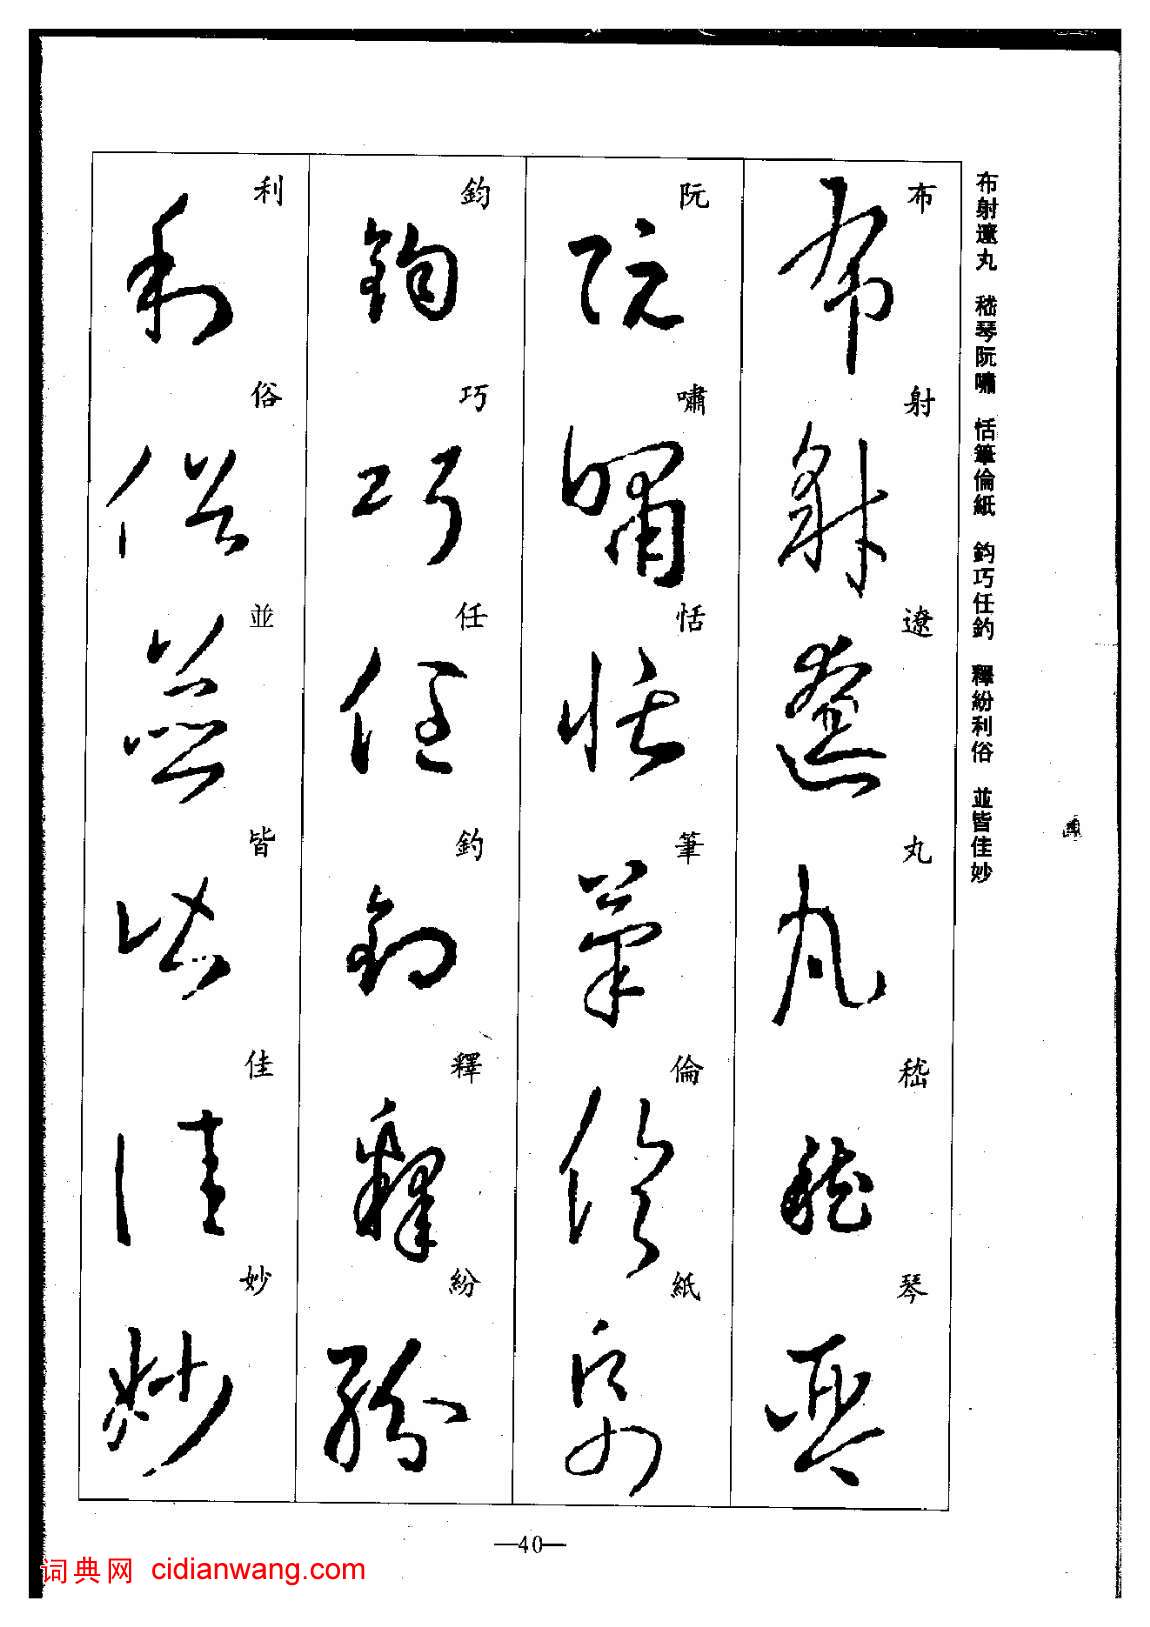 布射遼丸 嵇琴阮嘯 恬筆倫紙 鈞巧任釣 釋紛利俗 並皆佳妙
布射遼丸嵇琴
阮嘯恬筆倫紙
鈞巧任釣釋紛
利俗並皆佳妙
—40—
词典网 cidianwang.com